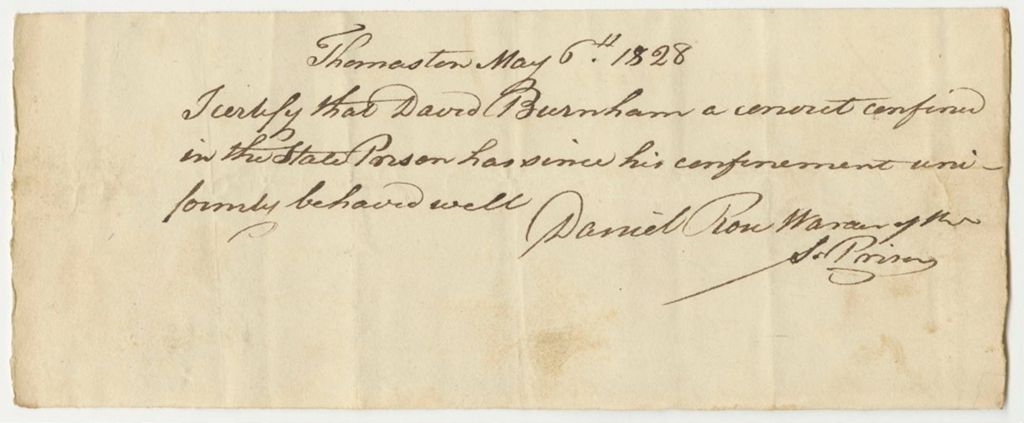 Thomaston May 6th. 1828
I certify that David Burnham a convict confined
in the State Prison has since his confinement uni-
formly behaved well
Daniel Rose Warden of the
St Prison